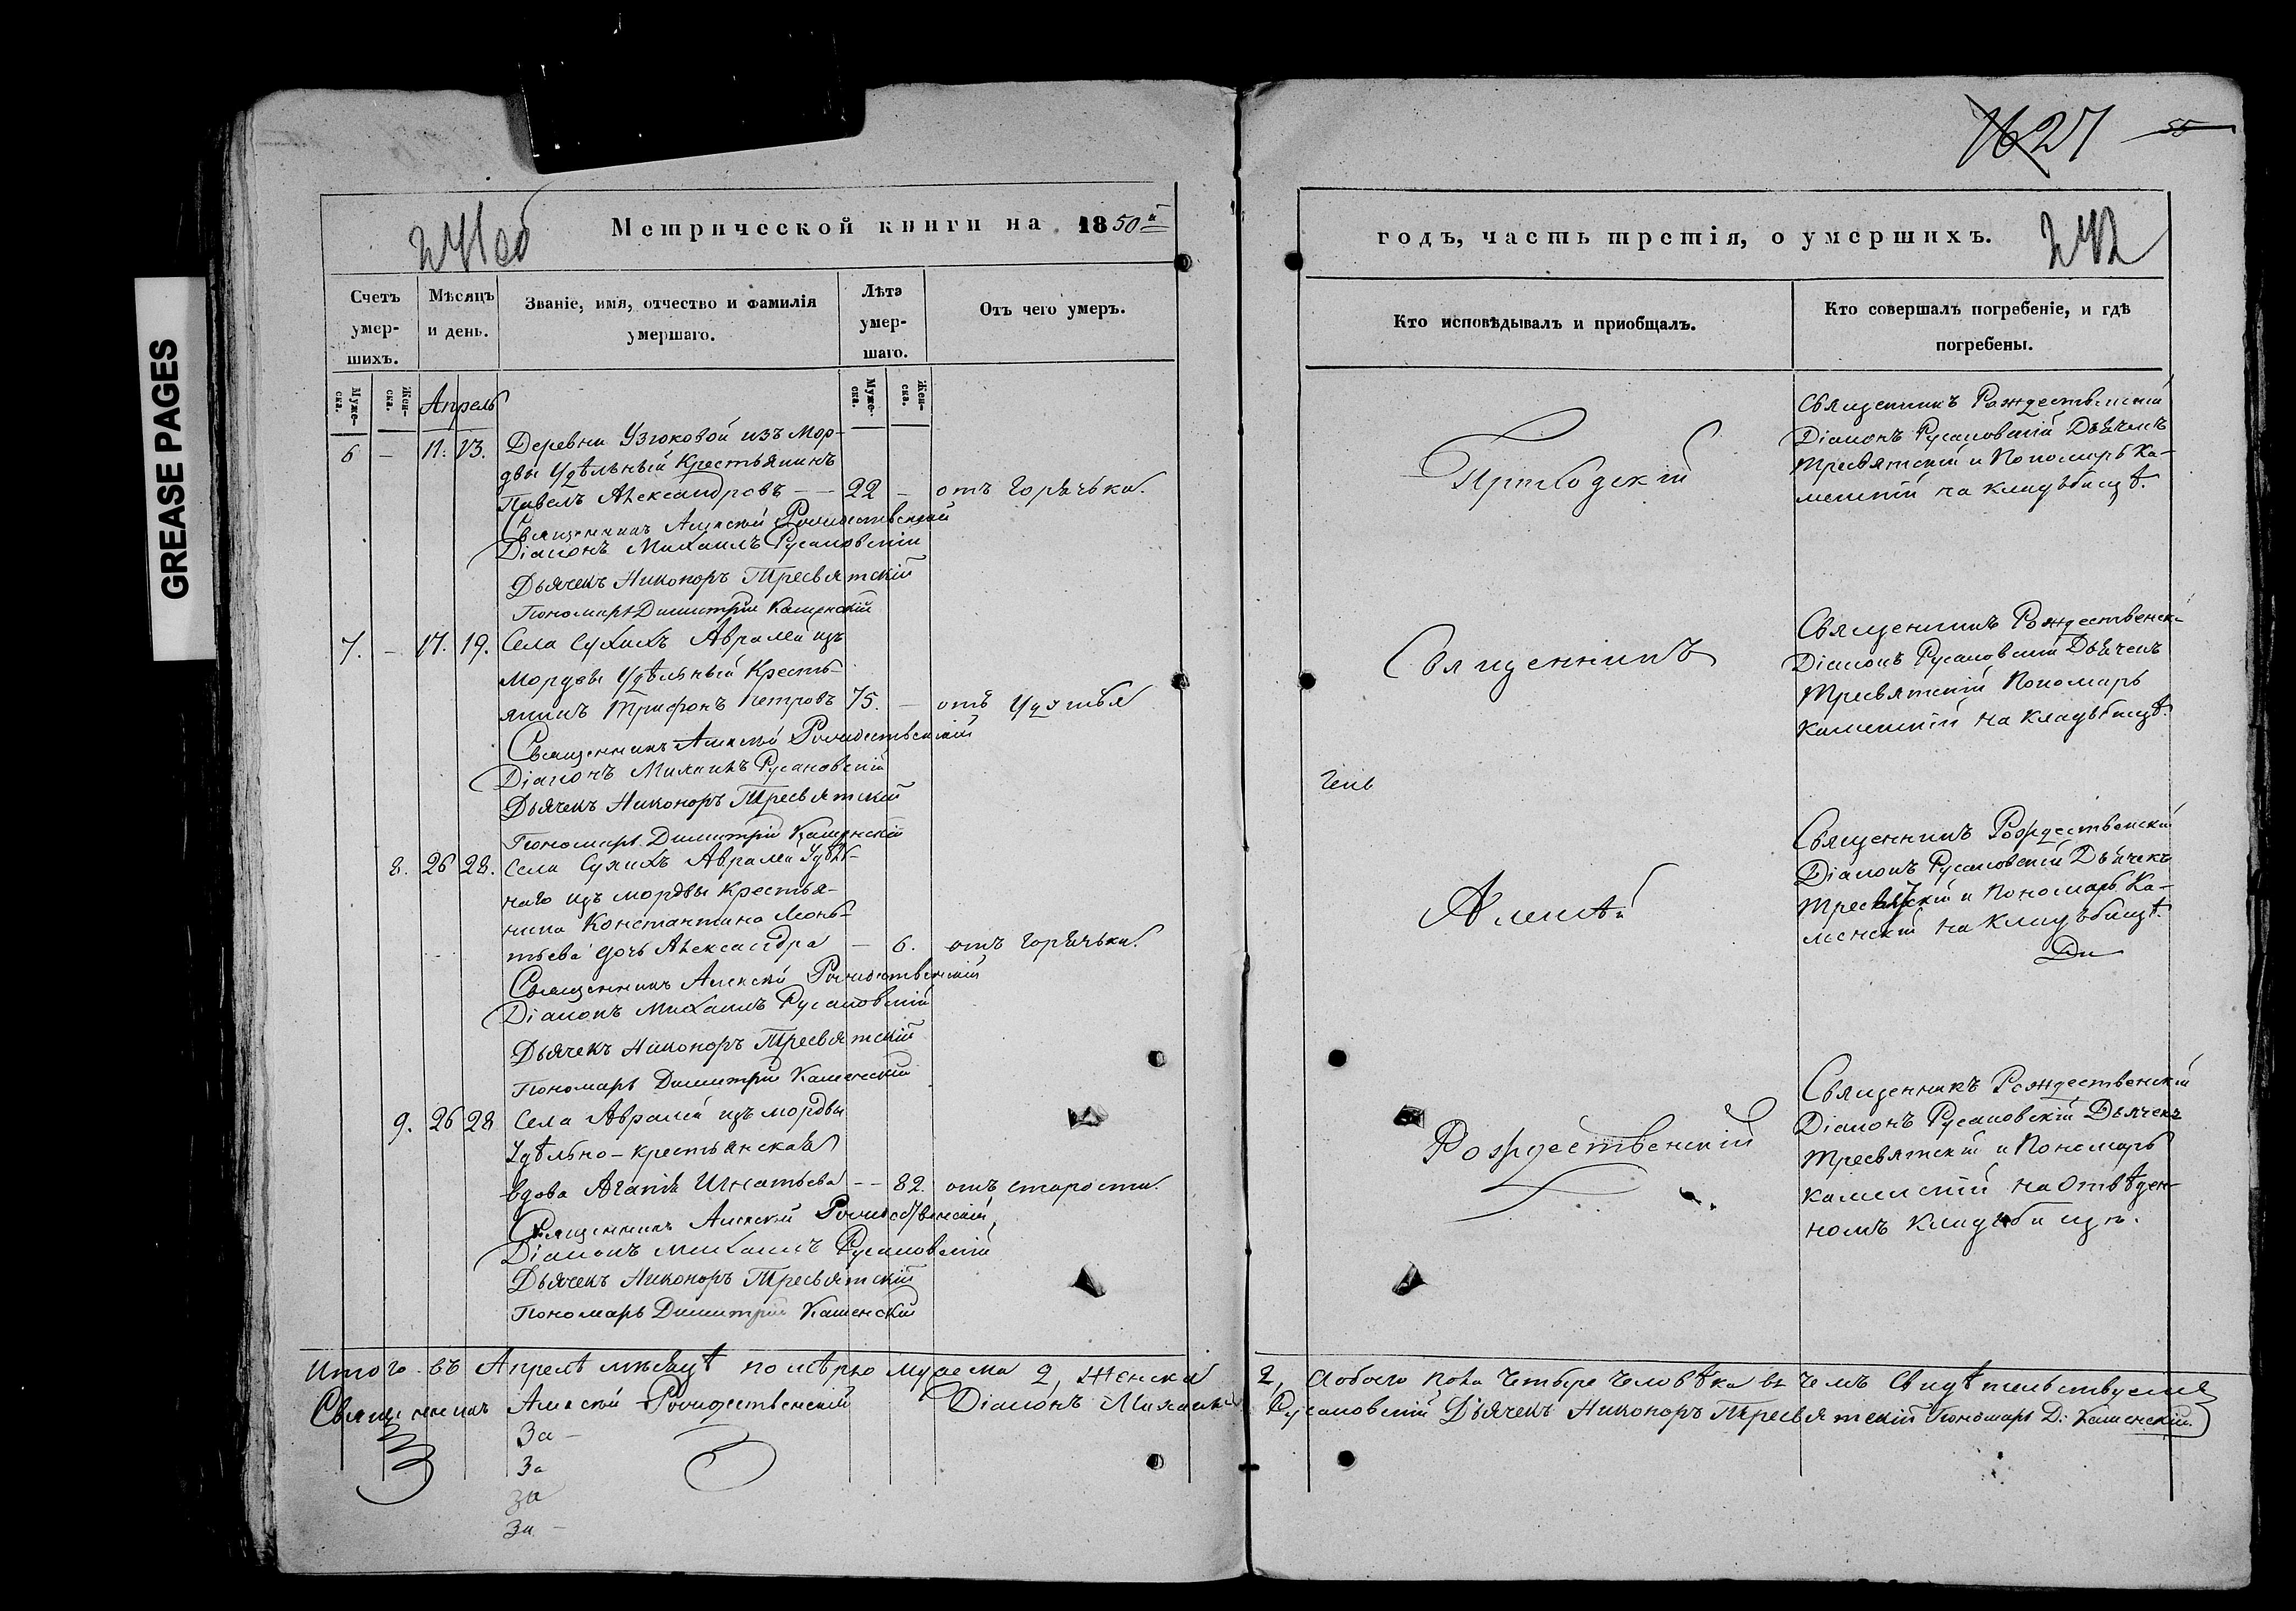 GREASE PAGES
241 об
Метрической книги на 1850й
Счетъ умер-шихъ.
Мѣсяцъ и день.
Званіе, имя, отчество и фамилія умершаго.
Лѣта умер-шаго.
Отъ чего умеръ.
Муже-ска.
Жен-ска.
Муже-ска.
Жен-ска.
Апрель
6 — 11. 13. Деревни Узюковой изъ Мор-
двы Удѣльный Крестьянинъ
Павелъ Александровъ — — 22 — отъ горячьки.
Священникъ Алексѣй Рождественскій
Діаконъ Михаилъ Русановскій
Дьячекъ Никоноръ Тресвятскій
Пономарь Димитрій Каменскій
7. — 17. 19. Села Сухихъ Авралей изъ
Мордвы Удѣльный Кресть-
янинъ Трифонъ Петровъ 75. — отъ
Священникъ Алексѣй Рождественскій
Діаконъ Михаилъ Русановскій
Дьячекъ Никоноръ Тресвятскій
Пономарь Димитрій Каменскій
8. 26 28. Села Сухихъ Авралей Удѣль-
наго изъ мордвы Крестья-
нина Константина
дочь Александра — 6. отъ горячьки.
Священникъ Алексѣй Рождественскій
Діаконъ Михаилъ Русановскій
Дьячекъ Никоноръ Тресвятскій
Пономарь Димитрій Каменскій
9. 26 28 Села Авралей изъ мордвы
Удѣльно-крестьянская
вдова Агапія Игнатьева — — 82. отъ старости.
Священникъ Алексѣй Рождественскій
Діаконъ Михаилъ Русановскій
Дьячекъ Никоноръ Тресвятскій
Пономарь Димитрій Каменскій
Итого въ Апрелѣ мѣсяцѣ померло мужеска 2, женска
Священникъ Алексѣй Рождественскій Діаконъ Михаилъ
За —
За
За
За —
16 27 55
годъ, часть третія, о умершихъ.
242
Кто исповѣдывалъ и приобщалъ.
Кто совершалъ погребеніе, и гдѣ погребены.
Приходскій
Священникъ Рождественскій
Діаконъ Русановскій Дьячекъ
Тресвятскій и Пономарь Ка-
менскій на кладьбищѣ.
Священникъ
Священникъ Рождественскі
Діаконъ Русановскій Дьячекъ
Тресвятскій Пономарь
Каменскій на Кладьбищѣ.
Алексѣй
Священникъ Рождественскій
Діаконъ Русановскій Дьячекъ
Тресвятскій и Пономарь Ка-
менскій на Кладьбищѣ.
Ди
Рождественскій
Священникъ Рождественскій
Діаконъ Русановскій Дьячекъ
Тресвятскій и Пономарь
Каменскій на Отвѣден-
номъ Кладьбищѣ.
2, Aобоего пола четыре человѣка въ чемъ Свидѣтельствуемъ
Русановскій Дьячекъ Никоноръ Тресвятскій Пономарь Д. Каменскій